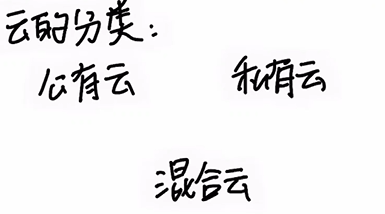 云的分类：
公有云 私有云
混合云